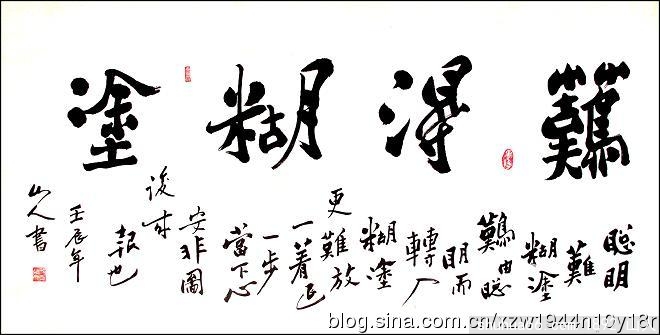 難得糊塗
聰明
難
糊塗
難由聰
明而
轉入
糊塗
更難放
一着退
一步
當下心
安非圖
後来
報也
壬辰年
山人書
blog.sina.com.cn/xzw1944n16y18r